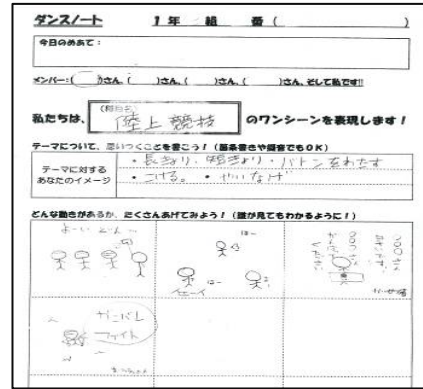 ダンスノート　１年　組　番（　　　　）
今日のめあて：
メンバー：（　　）さん、（　　）さん、（　　）さん、（　　）さん、そして私です!!
私たちは、
(種目名)
陸上競技
のワンシーンを表現します！
テーマについて、思いつくことを書こう！（箇条書きや擬音でもOK）
テーマに対する
あなたのイメージ
・長きょり、短きょり・バトンをわたす
・こける。・やりなげ
どんな動きがあるか、たくさんあげてみよう！（誰が見てもわかるように！）
よーい どーん
は〜
イェーイ
は〜
がんばれ
ファイト